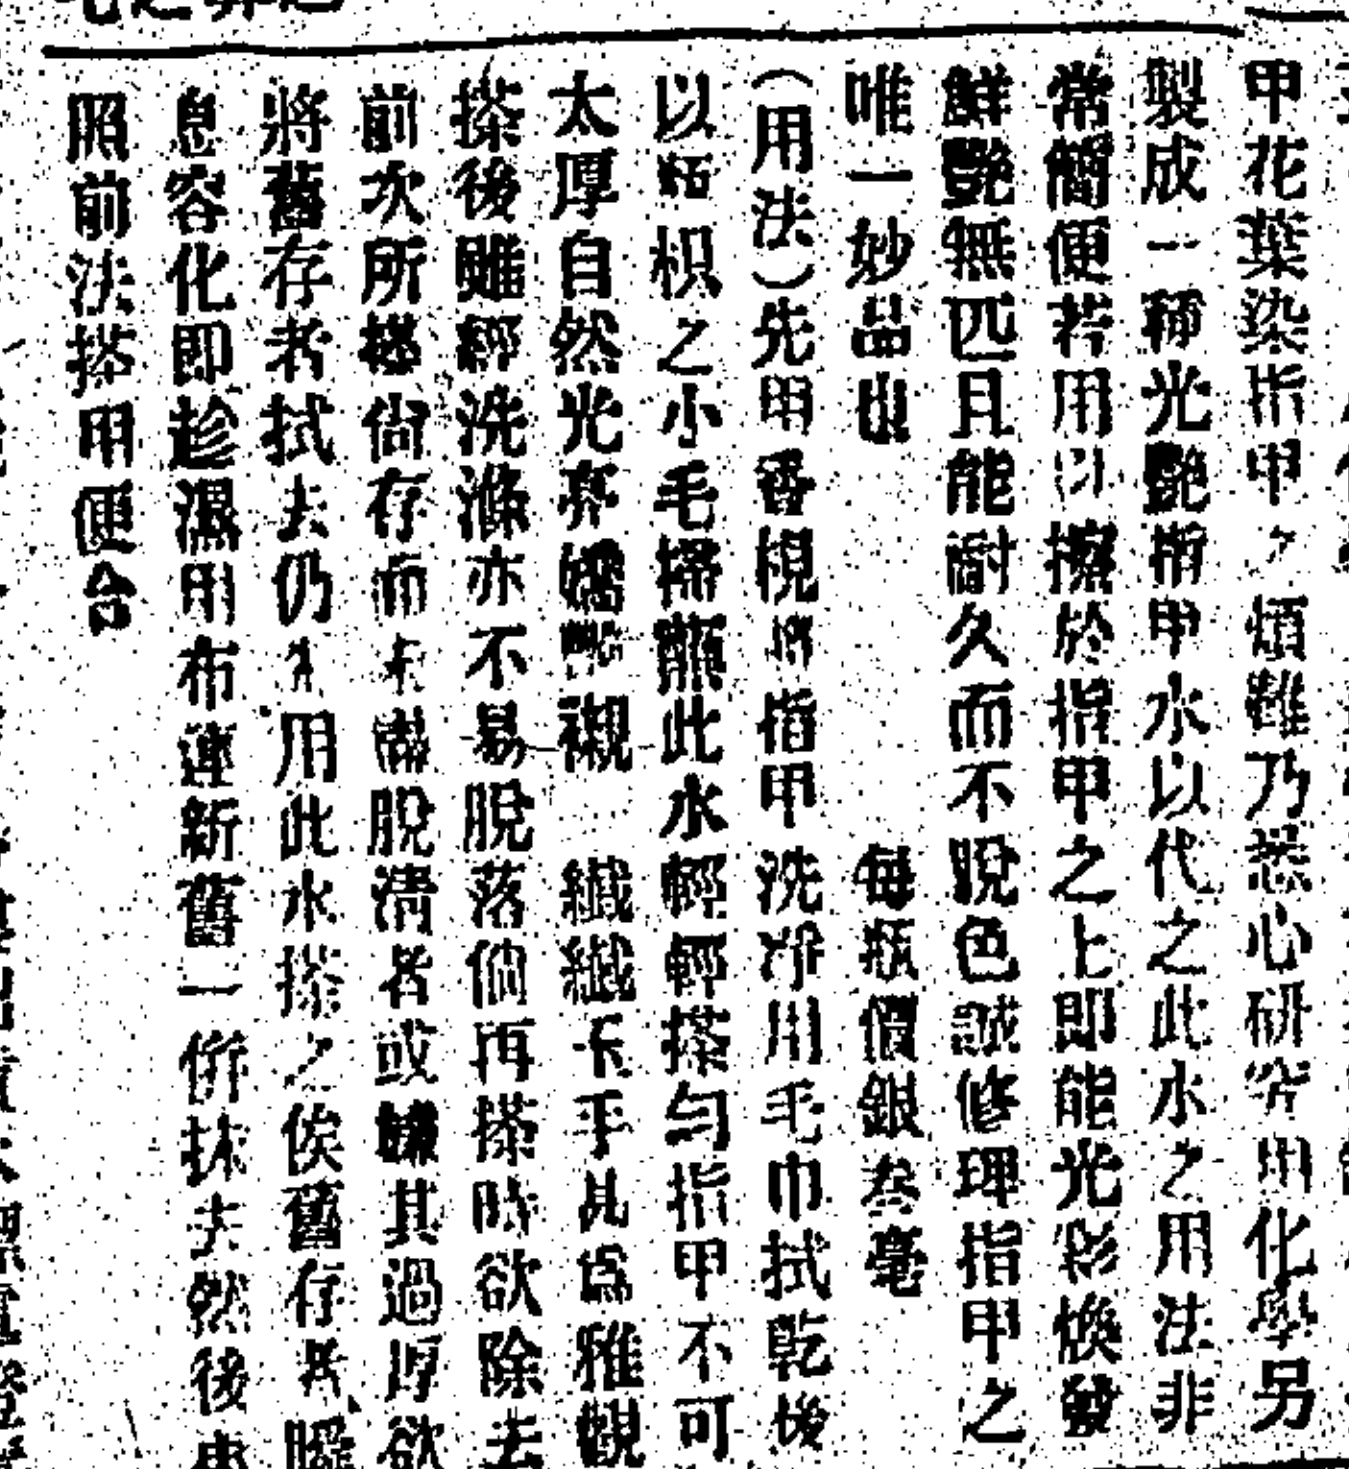 甲花葉染指甲之煩難乃悉心研究用化學另
製成一種光艷指甲水以代之此水之用法非
常簡便若用以擦於指甲之上即能光彩煥發
鮮艷無匹且能耐久而不脫色誠修理指甲之
唯一妙品也 每瓶價銀叁毫
(用法)先用番梘將指甲洗淨用毛巾拭乾後
以 枳之小毛掃蘸此水輕輕搽勻指甲不可
太厚自然光亮嬌 襯 纖纖玉手甚為雅觀
搽後雖經洗滌亦不易脫落倘再搽時欲除去
前次所搽尚存而未盡脫清者或嫌其過厚欲
將舊存者拭去仍 用此水搽之俟舊存者
息容化即趁濕用布連新舊一併抹去然後再
照前法搽用便合